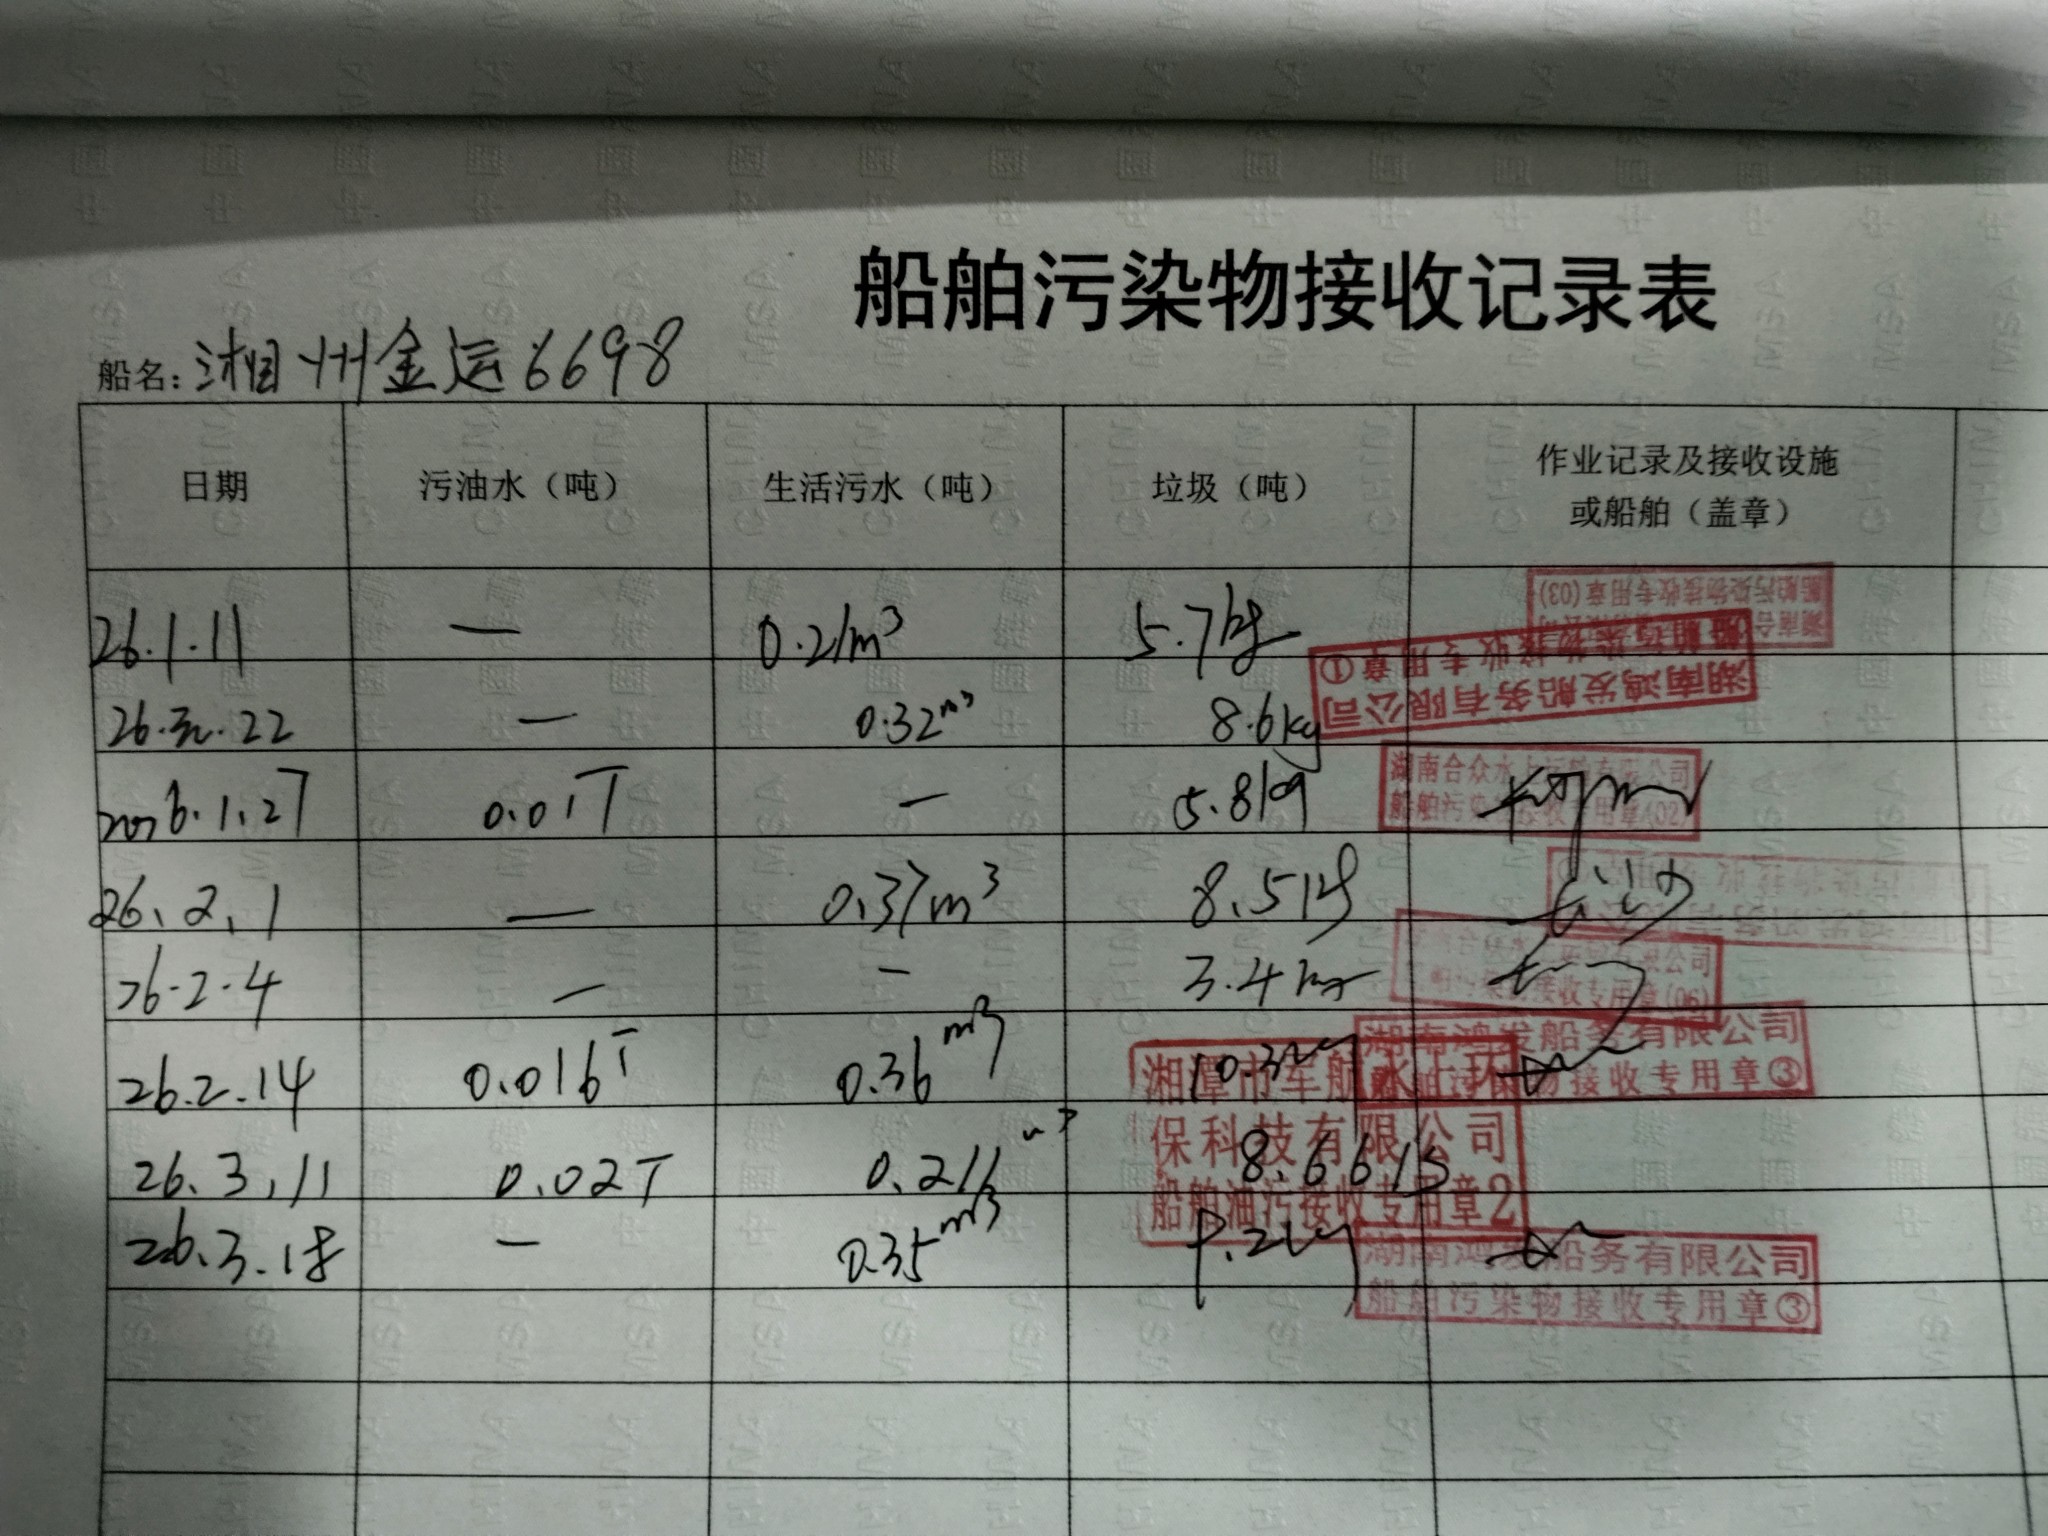 船舶污染物接收记录表
船名：湘州金运6698
日期 污油水（吨） 生活污水（吨） 垃圾（吨） 作业记录及接收设施或船舶（盖章）
26.1.11 — 0.21m³ 5.7kg
船舶污染物接收专用章(03)
湖南鸿发船务有限公司
船舶污染物接收专用章①
26. .22 — 0.32m³ 8.6kg
2026.1.27 0.01T — 5.8kg
湖南合众水上运输有限公司
船舶污染物接收专用章(02)
26.2.1 — 0.37m³ 8.5kg
26.2.4 — — 3.4kg
接收专用章(06)
26.2.14 0.016T 0.36m³ 10.3kg
湖南鸿发船务有限公司
船舶污染物接收专用章③
26.3.11 0.02T 0.211m³ 8.66
湘潭市军航水上环
保科技有限公司
船舶油污接收专用章2
26.3.18 — 0.35m³ 9.2kg
湖南鸿发船务有限公司
船舶污染物接收专用章③